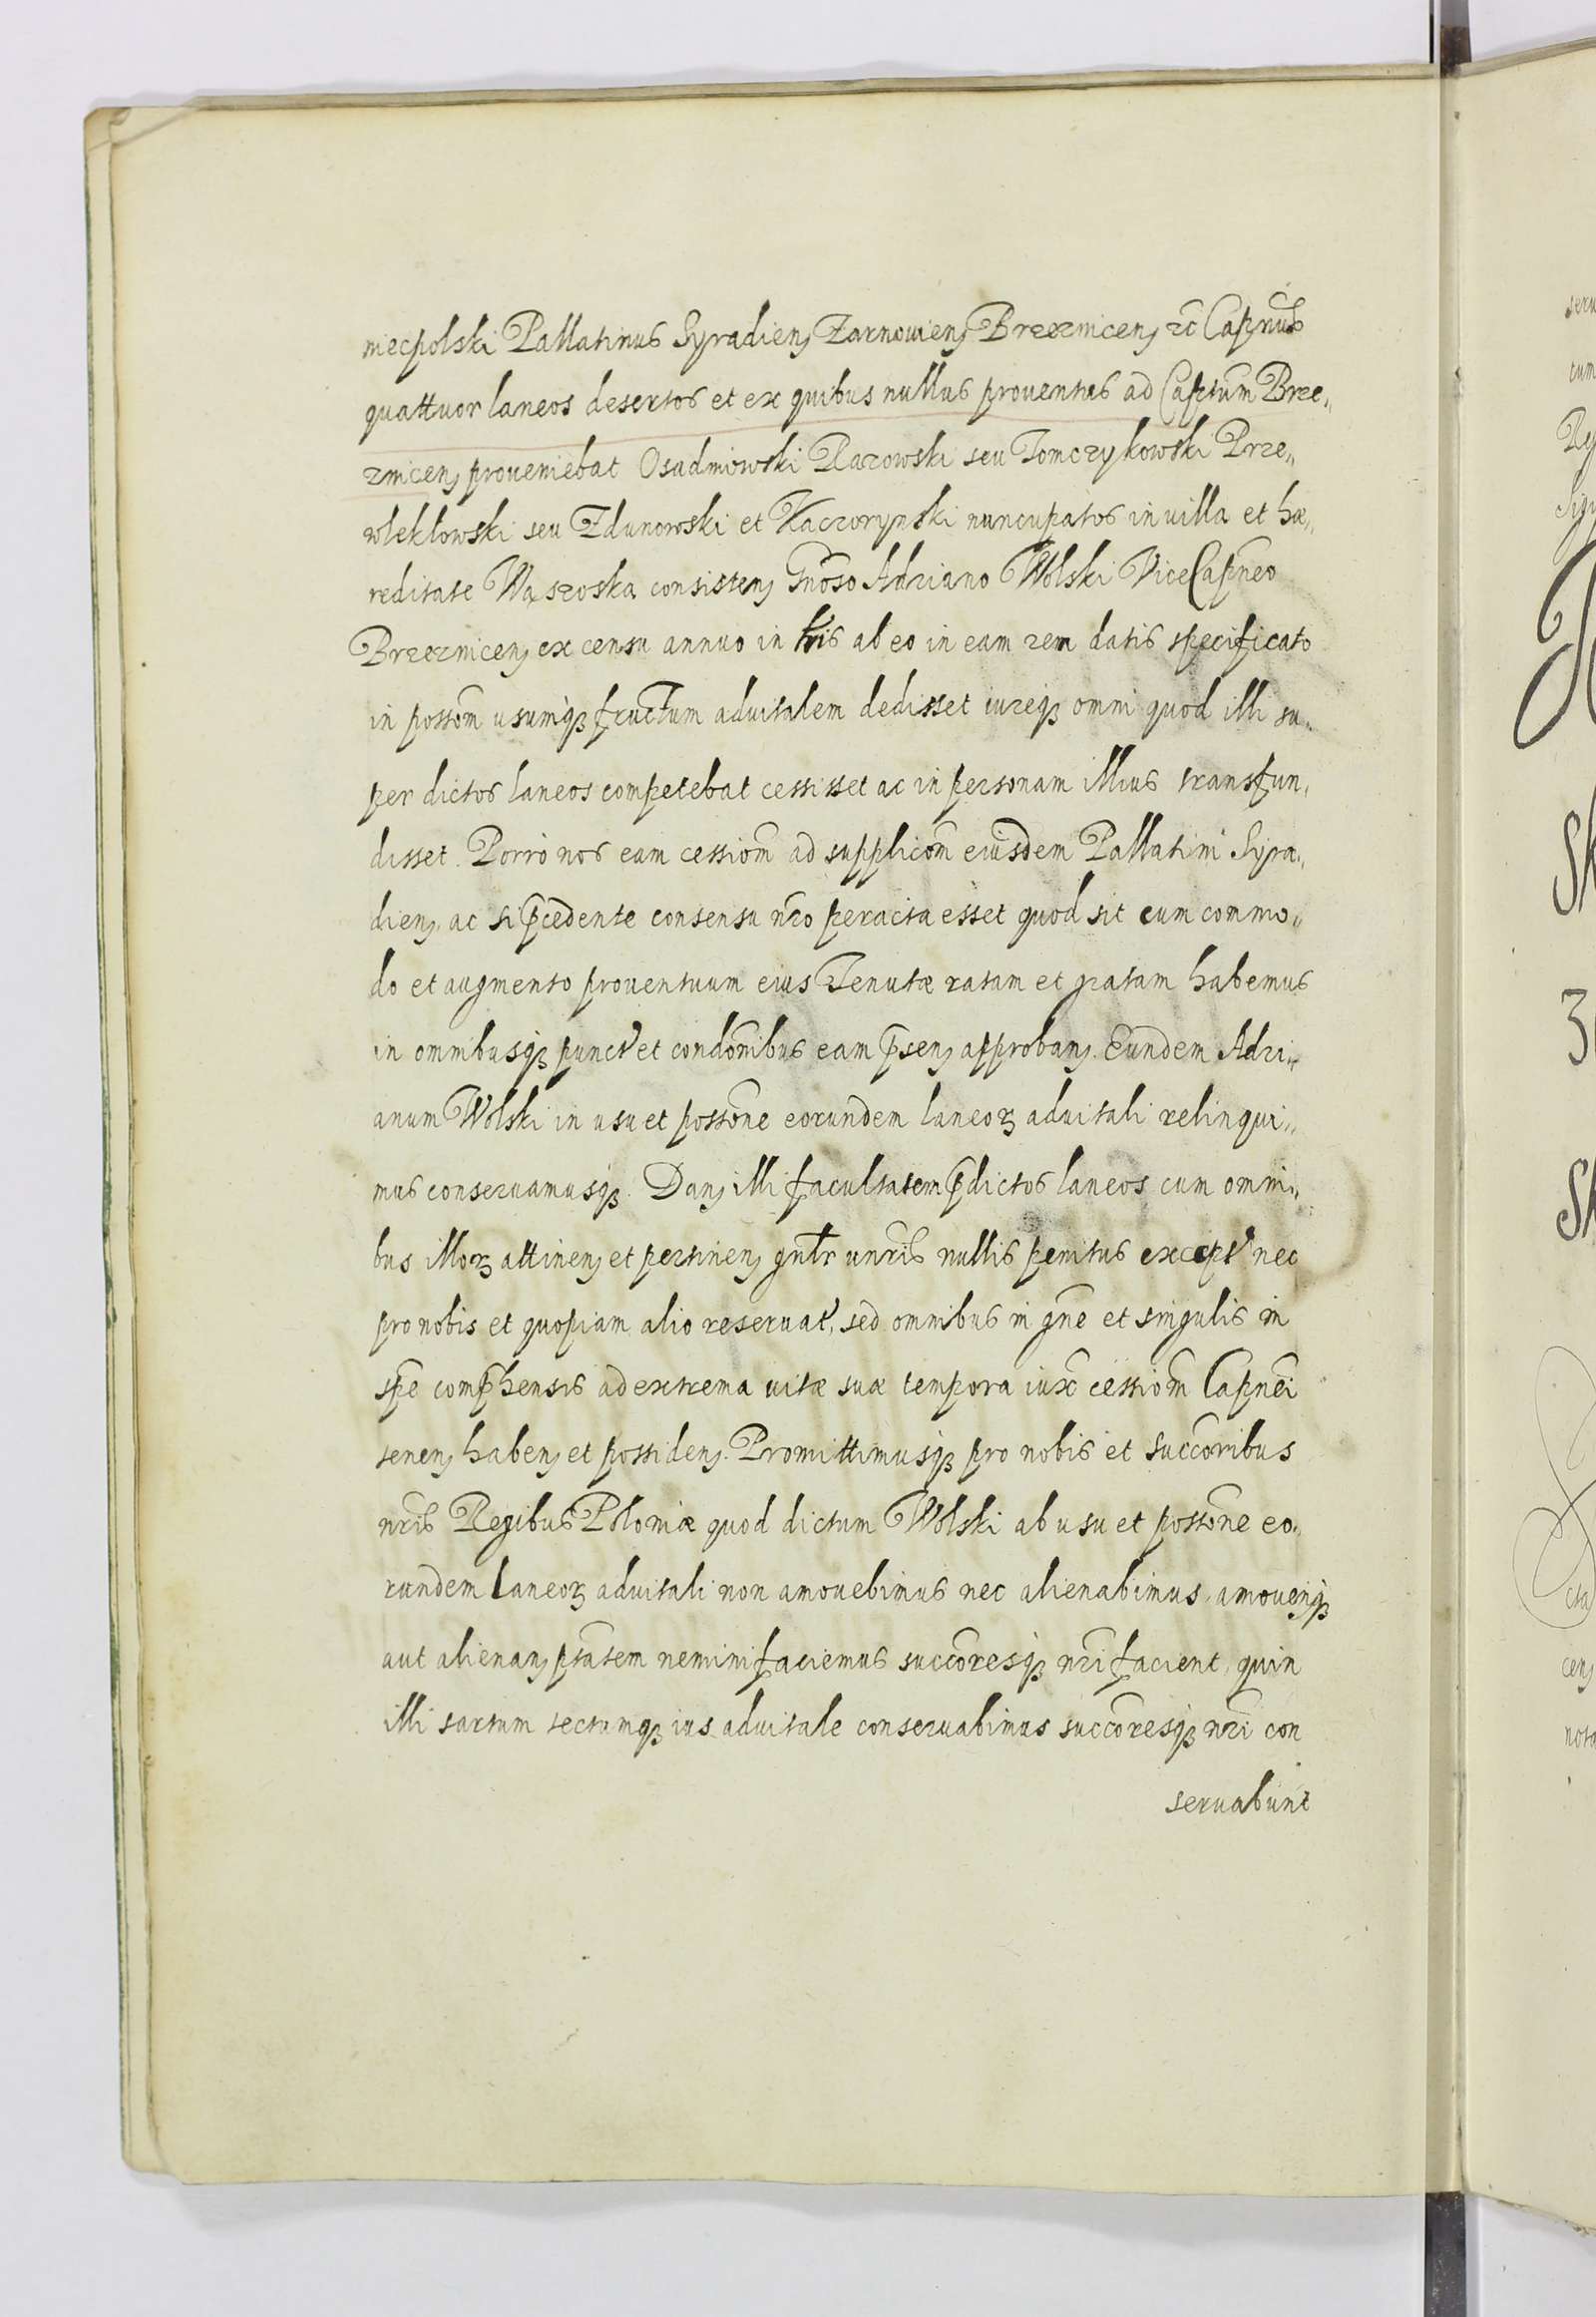 niecpolski Pallatinus Syradien̄ Zarnowien̄ Brzeznicen̄ etc̄ Capn̄us
quattuor laneos desertos et ex quibus nullus prouentus ad Captūm Brze„
znicen̄ proueniebat Osadniowski Razowski seu Tomczykowski Prze„
wlekłowski seu Zdunowski et Kaczorynski nuncupatos in uilla et hæ„
reditate Wąszoska consisten̄ Gn̄oso Adriano Wolski ViceCapn̄eo
Brzeznicen̄ ex censu annuo in lr̄is ab eo in eam rem datis specificato
in possom̄ usumqȝ fructum aduitalem dedisset iureqȝ omni quod illi su„
per dictos laneos competebat cessisset ac in personam illius transfun„
disset. Porrò nos eam cessiom̄ ad supplicom̄ eiusdem Pallatini Syra„
dien̄ ac si p̄cedente consensu nr̄o peracta esset quod sit cum commo„
do et augmento prouentuum eius Tenutæ ratam et gratam habemus
in omnibusqȝ punct' et condom̄ibus eam p̄sen̄ approban̄. Eundem Adri„
anum Wolski in usu et posson̄e eorundem laneoꝝ aduitali relinqui„
mus conseruamusqȝ. Dan̄ illi facultatem p̄dictos laneos cum omni„
bus illoꝝ attinen̄ et pertinen̄ gn̄lr unr̄is nullis penitus except' nec
pro nobis et quopiam alio reseruat', sed omnibus in gn̄e et singulis in
sp̄e comp̄hensis ad extrema uitæ suæ tempora iux̄ cessiom̄ Capn̄ei
tenen̄ haben̄ et possiden̄. Promittimusqȝ pro nobis et succ̄oribus
nr̄is Regibus Poloniæ quod dictum Wolski ab usu et posson̄e eo„
rundem laneoꝝ aduitali non amouebimus nec alienabimus, amouen̄qȝ
aut alienan̄ pt̄atem nemini faciemus succ̄oresqȝ nr̄i facient, quin
illi sartum tectumqȝ ius aduitale conseruabimus succ̄oresqȝ nr̄i con
seruabunt